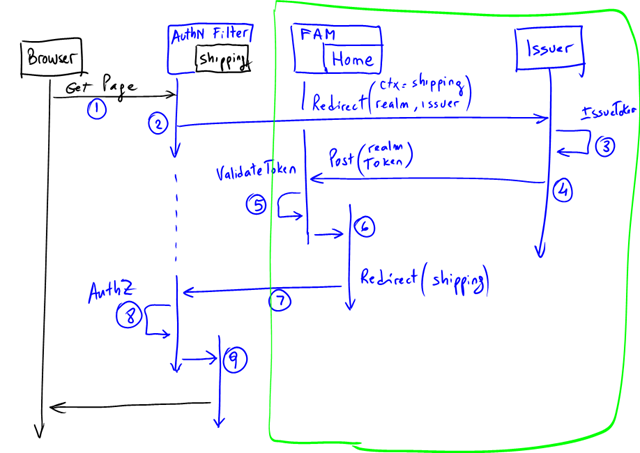 AuthN Filter
FAM
Browser
shipping
Home
Issuer
Get Page
1
Redirect(ctx=shipping
realm, issuer)
2
IssueToken
3
Post(realm
Token)
ValidateToken
4
5
6
Redirect(shipping)
7
AuthZ
8
9